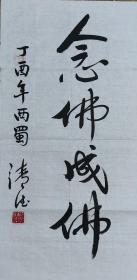 念佛成佛
丁酉年西蜀
清德